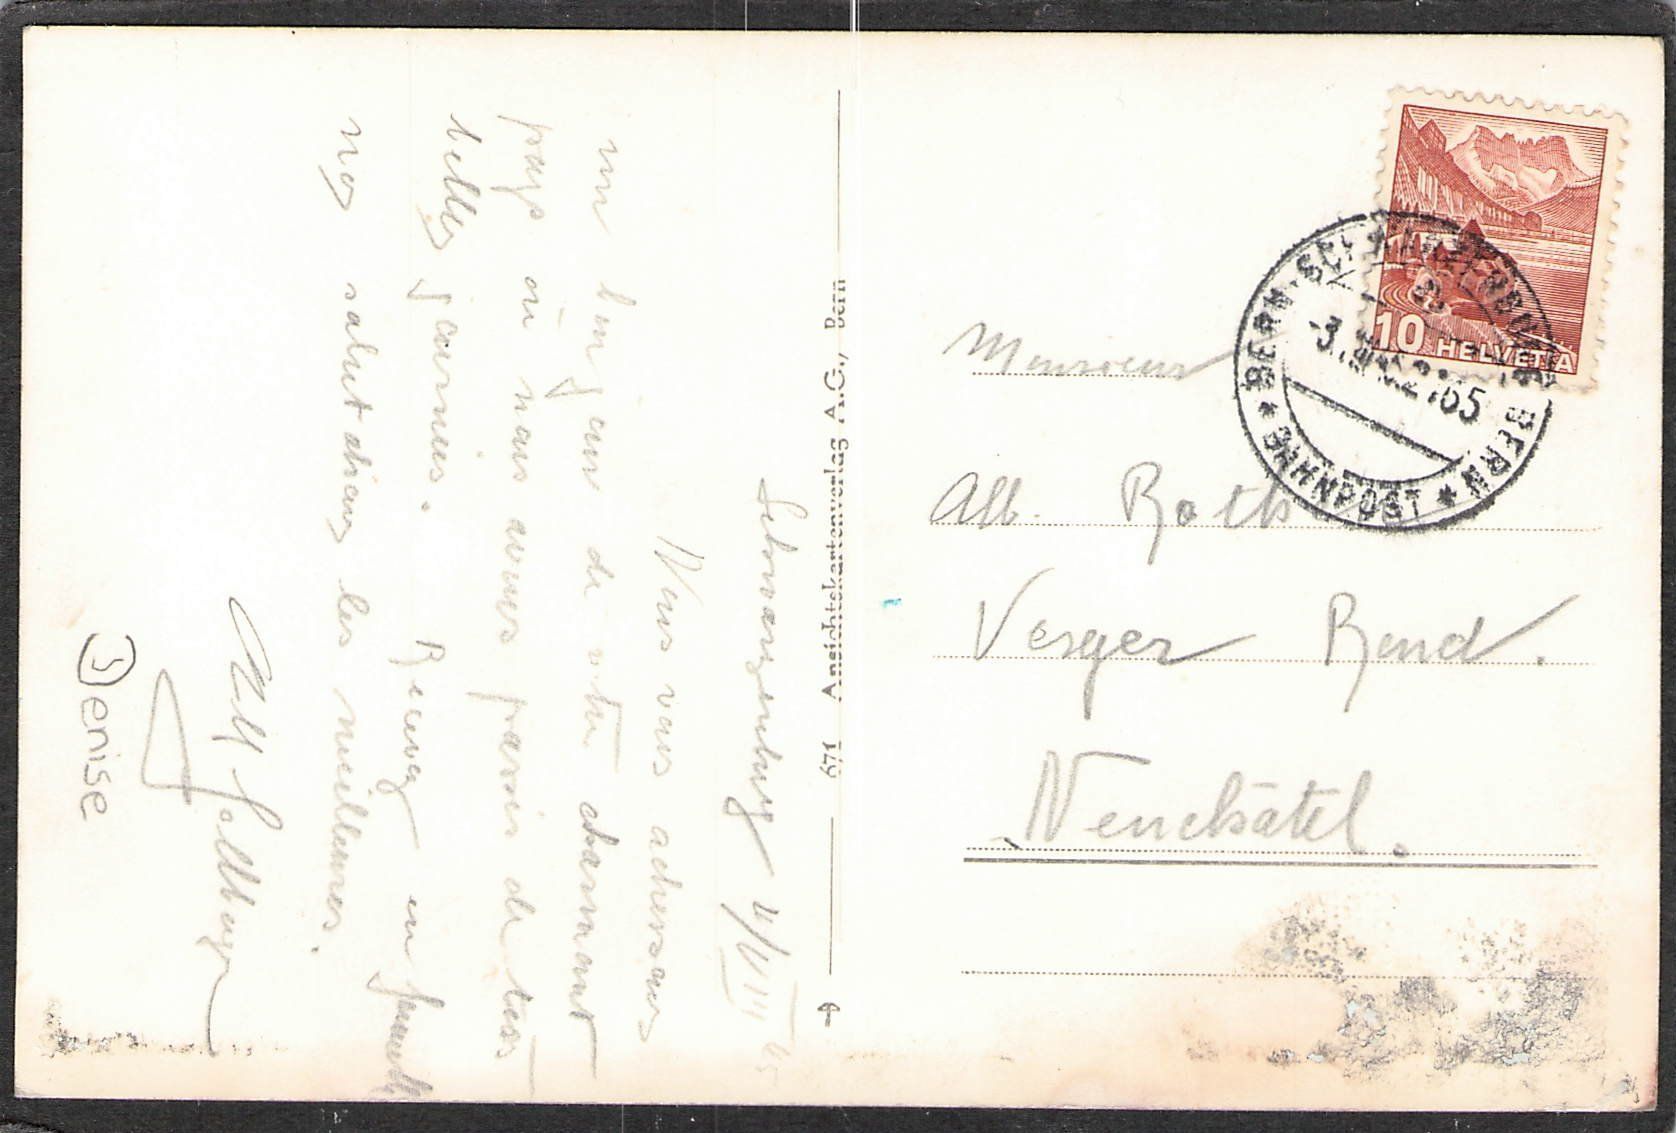 Schwarzenburg 4/VIII 45
Nous vous adressons
un bonjour de votre charmant
pays où nous avons passés de très
belles journées. Recevez en famille
nos salutations les meilleures.
Denise
671 Ansichtskartenverlag A.G., Bern
10 HELVETIA
BERN-SCHWARZENBURG-BERN
BAHNPOST
Monsieur
Alb. Roth
Verger Rond.
Neuchâtel.